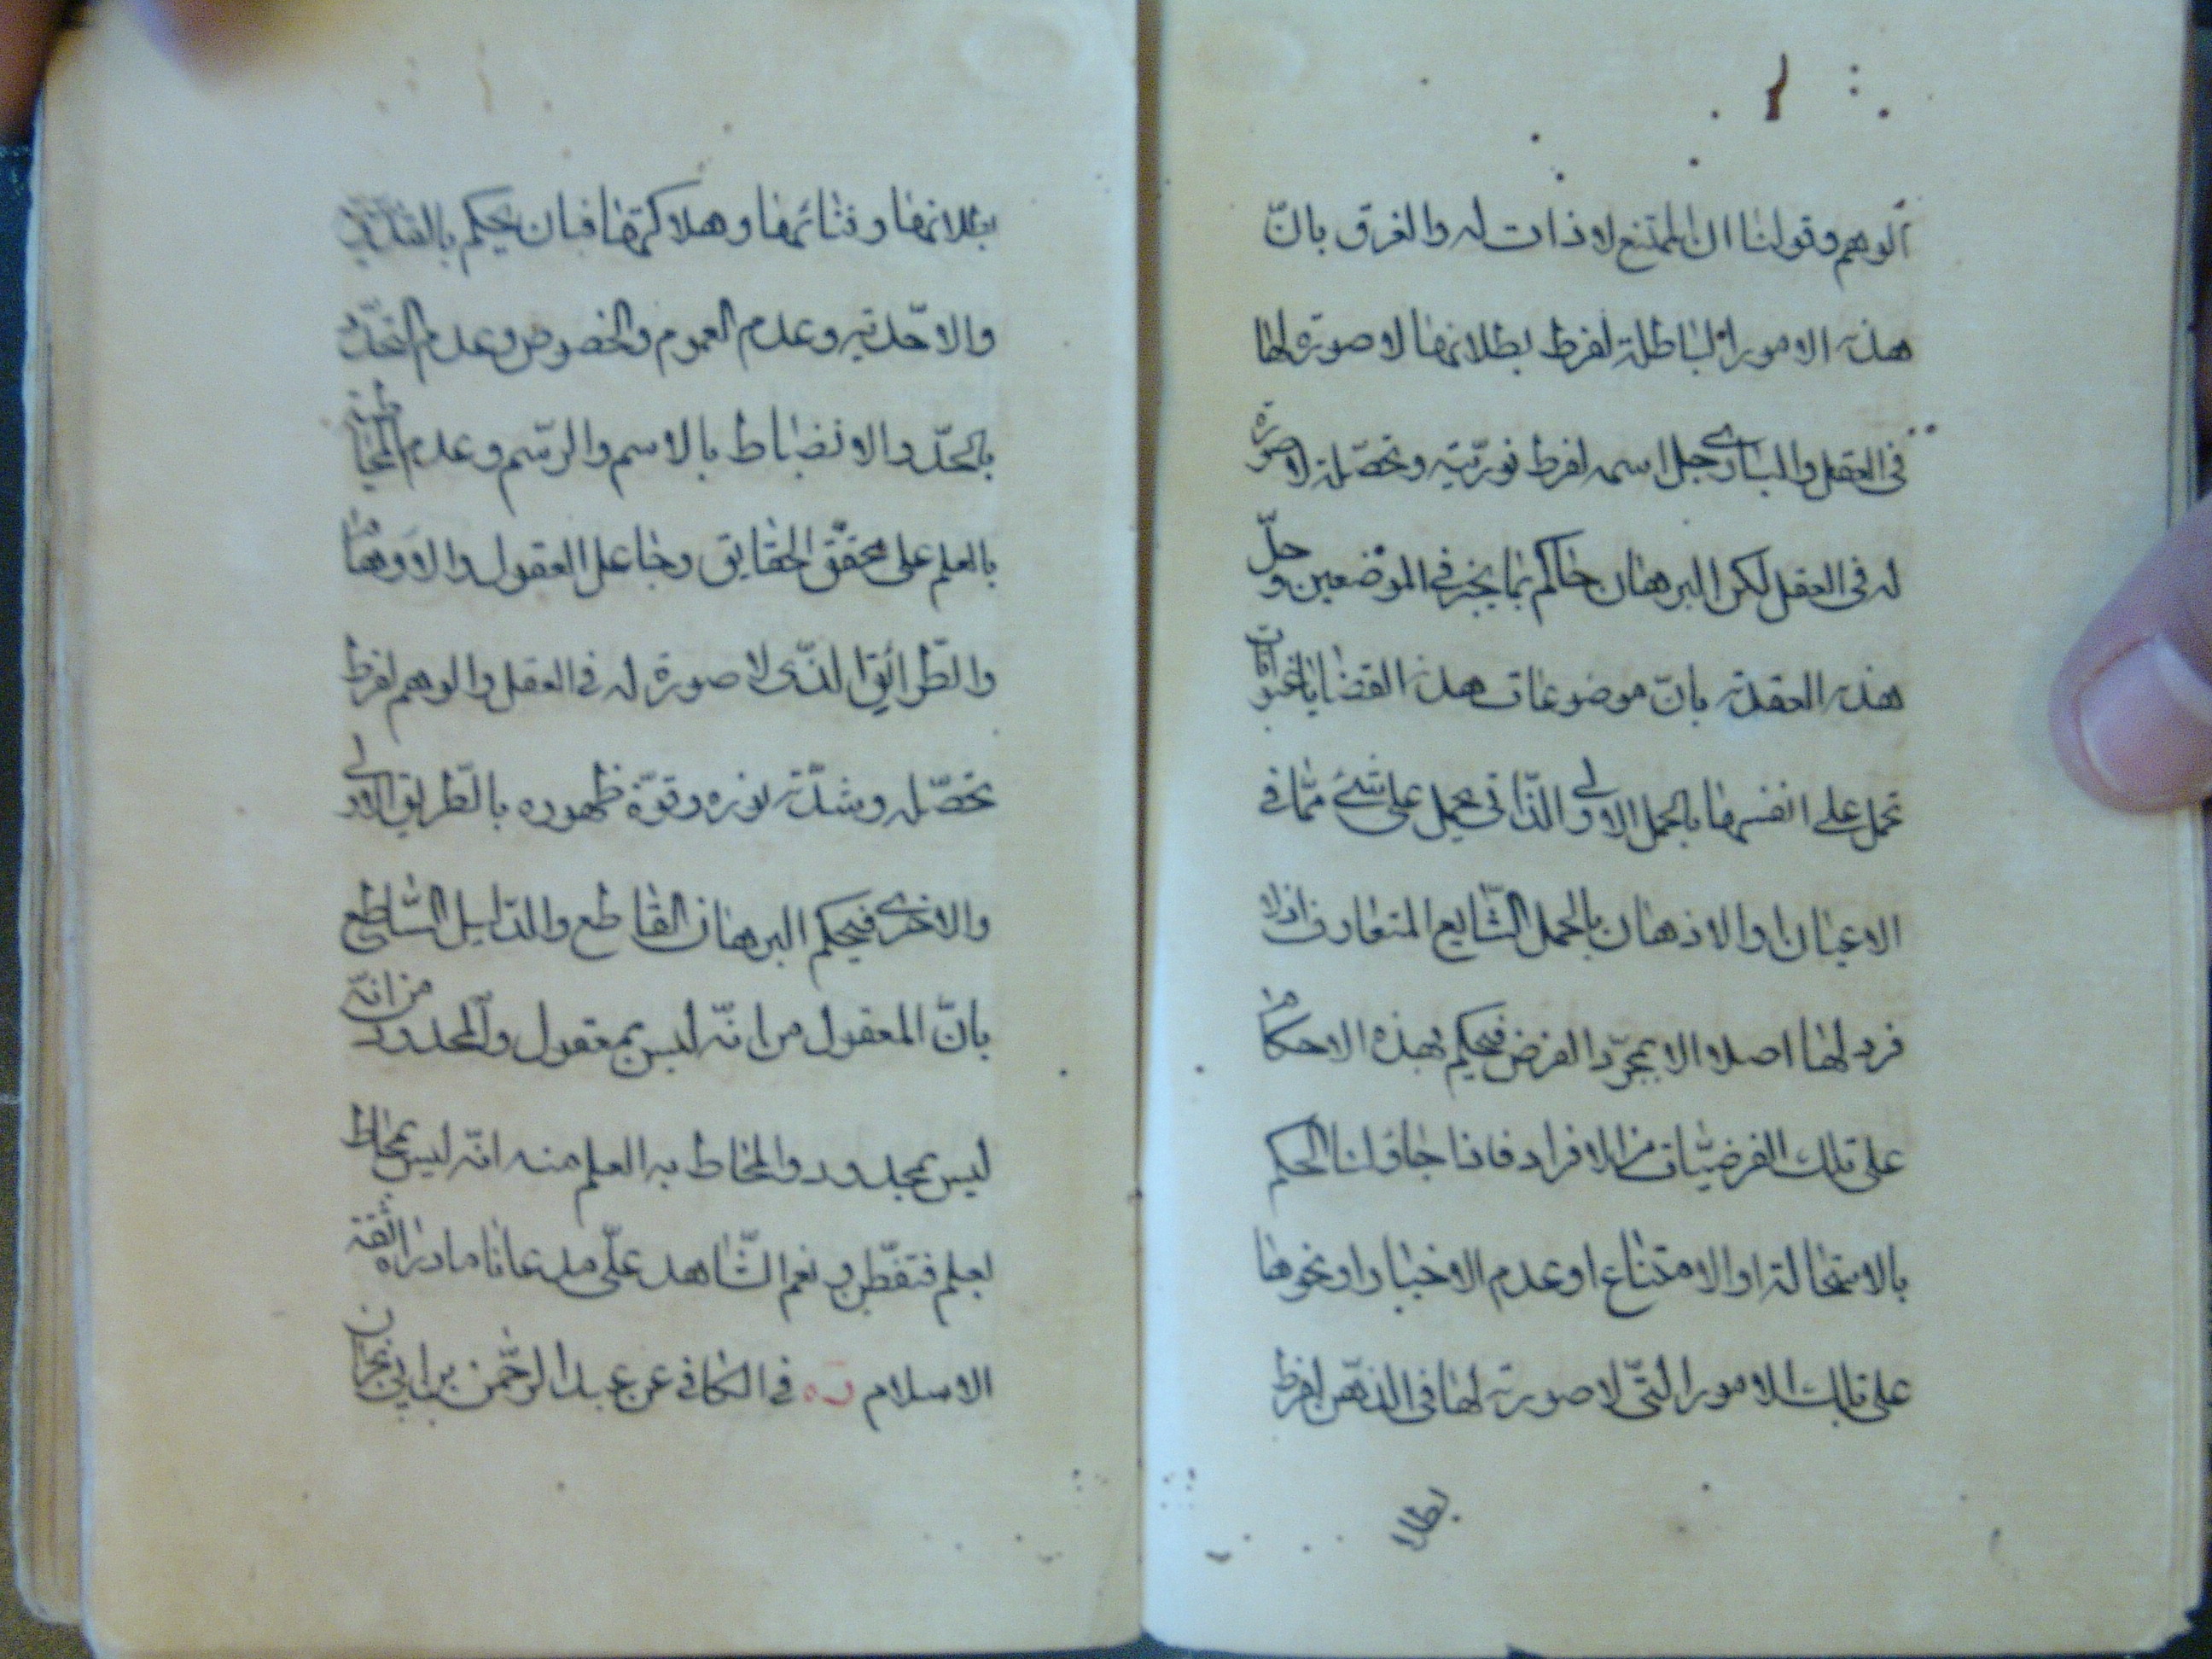 الوهم وقولنا ان الممتنع لا ذات له والفرق بانّ
هذه الامور الباطلة لفرط بطلانها لا صورة لها
فى العقل والبارى جل اسمه لفرط نوريّته وتحصّله لا صورة
له فى العقل لكن البرهان حاكم بما يخبر فى الموضعين وحلّ
هذه العقدة بانّ موضوعات هذه القضايا
تحمل على انفسها بالحمل الاولى الذّاتى على شئ ممّا فى
الاعيان او الاذهان بالحمل الشّايع المتعارف اذ لا
فرد لها اصلا الا بمجرّد الفرض فيحكم بهذه الاحكام
على تلك الفرضيّات من الافراد فاذا حاولنا الحكم
بالاستحالة او الامتناع او عدم الاخبار او نحوها
على تلك الامور الّتى لا صورة لها فى الذّهن لفرط
بطلا
بطلانها وهلاكتها فبان يحكم
والاحّديّه وعدم العموم والخصوص وعدم
بالحدّ والانضباط بالاسم والرّسم وعدم
بالعلم على محقّق الحقايق وجاعل العقول والاوهام
والطّرائق الّذى لا صورة له فى العقل والوهم لفرط
تحصّله وشدّة نوره وقوّة ظهوره بالطّريق الاولى
والاخرى فيحكم البرهان القاطع والدّليل السّاطع
بانّ المعقول من انّه ليس بمعقول والمحدود من انّه
ليس بمحدود والمحاط به العلم منه انّه ليس بمحاط
لعلم فتفطّن ونعم الشّاهد على مدعانا ما رواه ثقة
الاسلام ره فى الكافى عن عبد الرّحمن بن ابى نجران